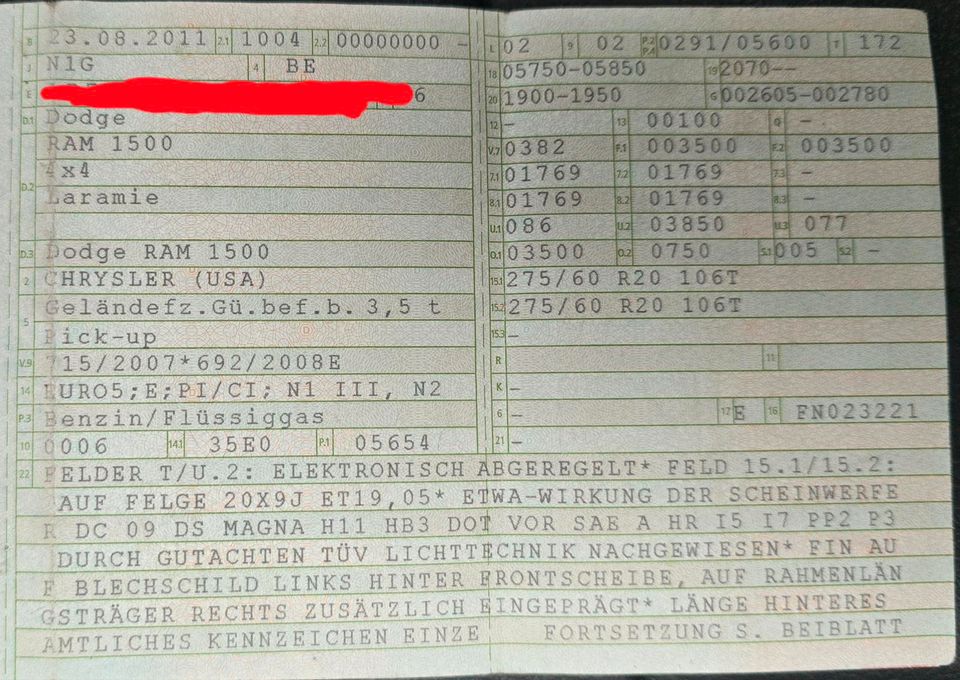 B 23.08.2011 2.1 1004 2.2 00000000 -
J N1G 4 BE
E 6
D.1 Dodge
RAM 1500
D.2 4x4
Laramie
D.3 Dodge RAM 1500
2 CHRYSLER (USA)
5 Geländefz.Gü.bef.b. 3,5 t
Pick-up
V.9 715/2007*692/2008E
14 EURO5;E;PI/CI; N1 III, N2
P.3 Benzin/Flüssiggas
10 0006 14.1 35E0 P.1 05654
L 02 9 02 P.2 P.4 0291/05600 T 172
18 05750-05850 19 2070--
20 1900-1950 G 002605-002780
12 - 13 00100 Q -
V.7 0382 F.1 003500 F.2 003500
7.1 01769 7.2 01769 7.3 -
8.1 01769 8.2 01769 8.3 -
U.1 086 U.2 03850 U.3 077
O.1 03500 O.2 0750 S.1 005 S.2 -
15.1 275/60 R20 106T
15.2 275/60 R20 106T
15.3 -
R 11
K -
6 - 17 E 16 FN023221
21 -
22 FELDER T/U.2: ELEKTRONISCH ABGEREGELT* FELD 15.1/15.2:
AUF FELGE 20X9J ET19,05* ETWA-WIRKUNG DER SCHEINWERFE
R DC 09 DS MAGNA H11 HB3 DOT VOR SAE A HR I5 I7 PP2 P3
DURCH GUTACHTEN TÜV LICHTTECHNIK NACHGEWIESEN* FIN AU
F BLECHSCHILD LINKS HINTER FRONTSCHEIBE, AUF RAHMENLÄN
GSTRÄGER RECHTS ZUSÄTZLICH EINGEPRÄGT* LÄNGE HINTERES
AMTLICHES KENNZEICHEN EINZE FORTSETZUNG S. BEIBLATT